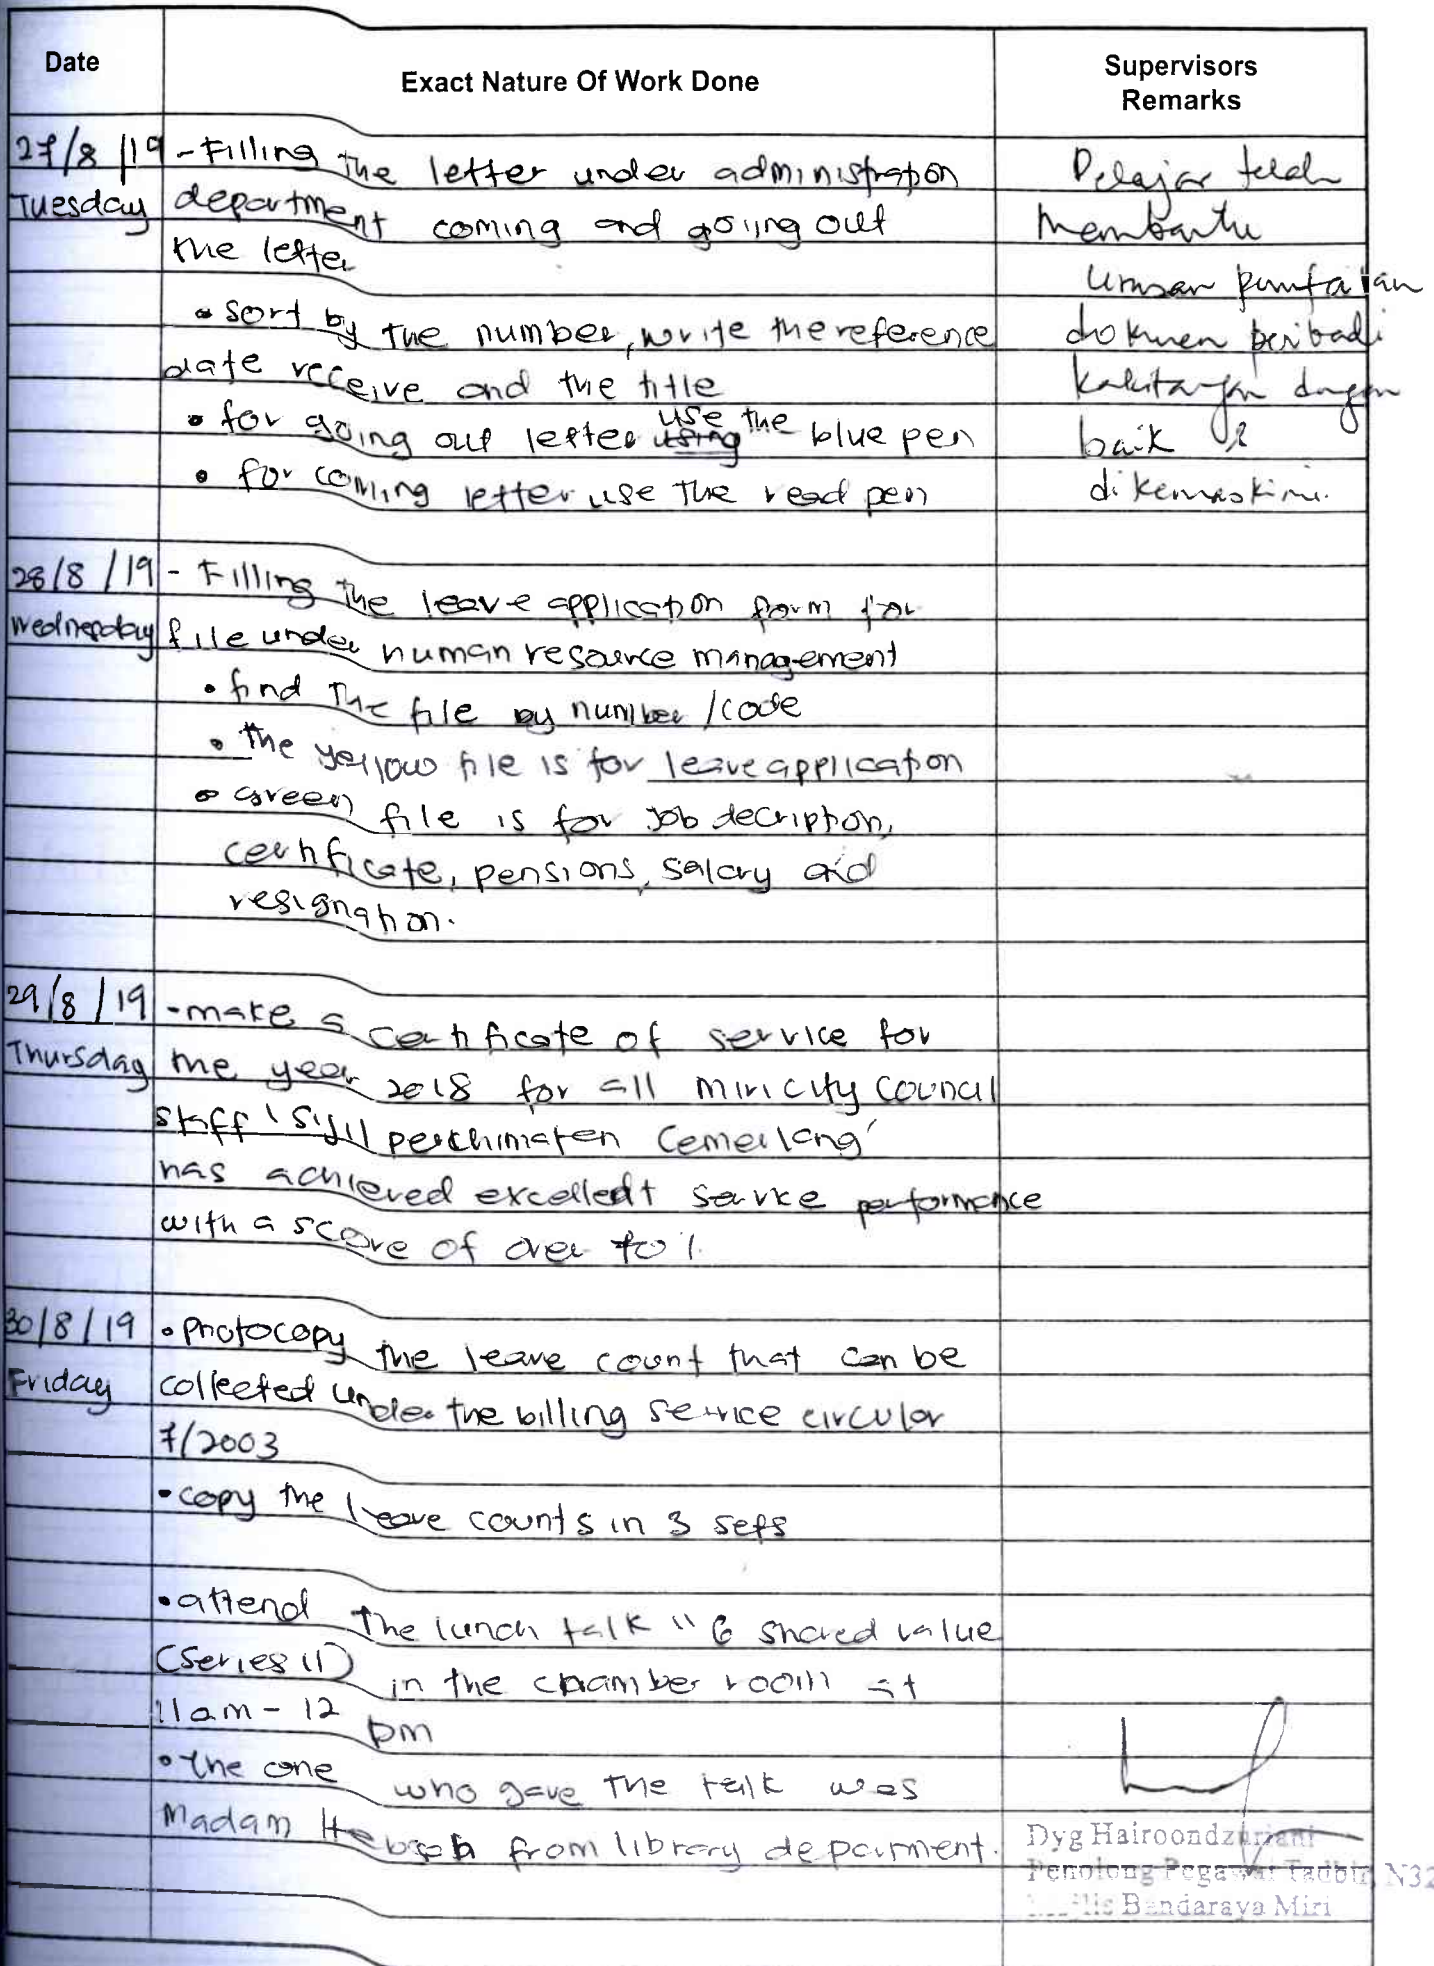 Date
Exact Nature Of Work Done
Supervisors
Remarks
27/8/19
Tuesday
- Filling the letter under administration
department coming and goiing out
the letter
• sort by the number, write the reference
date receive and the title
• for going out letter using use the blue pen
• for coming letter use the read pen
Pelajar telah
membantu
urusan pemfailan
dokumen peribadi
kakitangan dengan
baik &
dikemaskini.
28/8/19
Wednesday
- Filling the leave application form for
file under human resource management
• find the file by number/code
• the yellow file is for leave application
• Green file is for job decription,
certificate, pensions, salary and
resignation.
29/8/19
Thursday
- make a certificate of service for
the year 2018 for all miri city council
staff 'Sijil perkhimaten Cemerlang'
has achieved excelledt service performance
with a score of over
30/8/19
Friday
• Photocopy the leave count that can be
collected under the billing service circular
7/2003
• copy the leave counts in 3 sets
• attend the lunch talk " 6 shared value
(Series 11) in the chamber room at
11am - 12 pm
• the one who gave the talk was
Madam from library deparment.
Dyg Hairoondzariani
Penolong Pegawai Tadbir N32
Majlis Bandaraya Miri